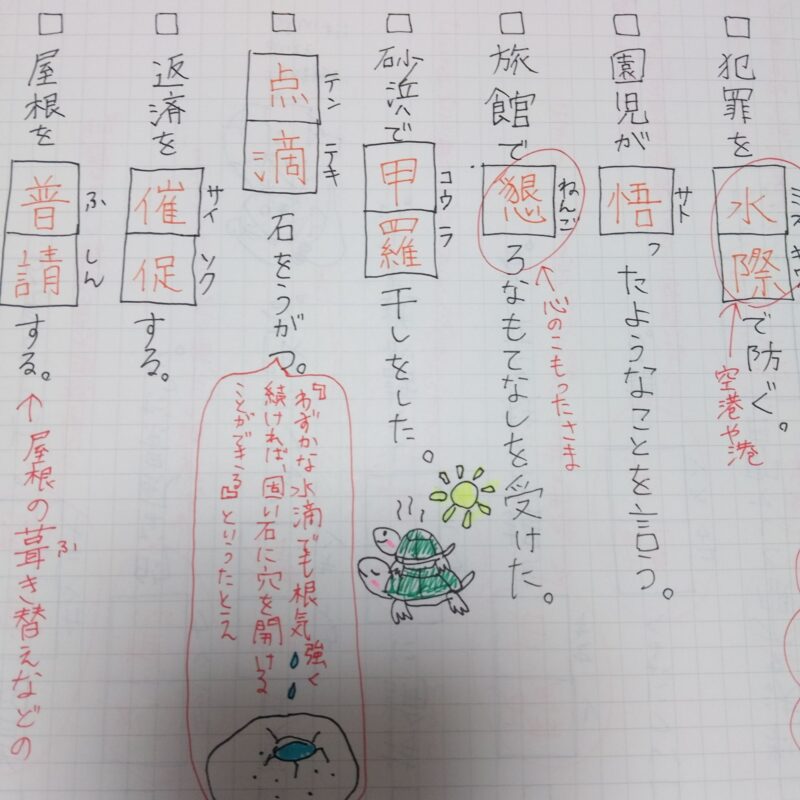 □ 犯罪を水際で防ぐ。
ミズギワ
↑空港や港
□ 園児が悟ったようなことを言う。
サト
□ 旅館で懇ろなもてなしを受けた。
ねんご
↑心のこもったさま
□ 砂浜で甲羅干しをした。
コウラ
□ 点滴石をうがつ。
テンテキ
『わずかな水滴でも根気強く
続ければ、固い石に穴を開ける
ことができる』といったたとえ
□ 返済を催促する。
サイソク
□ 屋根を普請する。
ふしん
↑屋根の葺き替えなどの
ふ